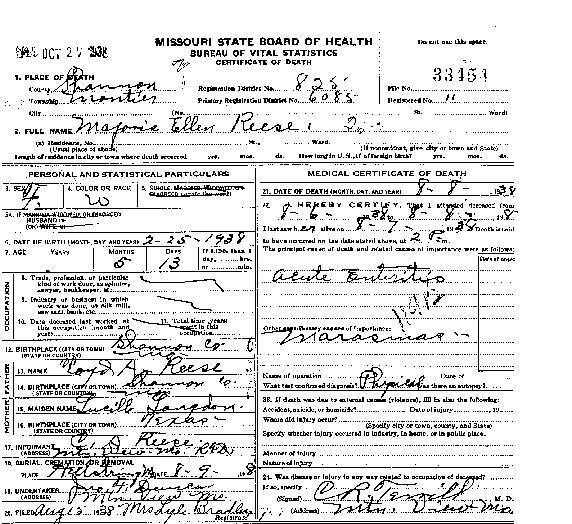 MISSOURI STATE BOARD OF HEALTH
BUREAU OF VITAL STATISTICS
CERTIFICATE OF DEATH
Do not use this space.
OCT 25 1938
1. PLACE OF DEATH
County Shannon
Registration District No. 825
File No. 33454
Township Montier
Primary Registration District No. 6085
Registered No. 11
City (No. St. Ward)
2. FULL NAME Marjorie Ellen Reese
(a) Residence, No. St. Ward.
(Usual place of abode) (If nonresident, give city or town and State)
Length of residence in city or town where death occurred yrs. mos. ds. How long in U.S., if of foreign birth? yrs. mos. ds.
PERSONAL AND STATISTICAL PARTICULARS
3. SEX F
4. COLOR OR RACE W
5. SINGLE, MARRIED, WIDOWED, OR
5A. IF MARRIED, WIDOWED, OR DIVORCED
HUSBAND OF
(OR) WIFE OF
6. DATE OF BIRTH (MONTH, DAY, AND YEAR) 2-25-1938
7. AGE YEARS MONTHS DAYS
5 13
OCCUPATION
8. Trade, profession, or particular
kind of work done, as spinner,
sawyer, bookkeeper, etc.
9. Industry or business in which
work was done, as silk mill,
saw mill, bank, etc.
10. Date deceased last worked at
this occupation (month and
year)
11. Total time (years)
spent in this
occupation
12. BIRTHPLACE (CITY OR TOWN) Shannon Co
(STATE OR COUNTRY)
FATHER
13. NAME Loyd A. Reese
14. BIRTHPLACE (CITY OR TOWN) Shannon Co
(STATE OR COUNTRY) Mo
MOTHER
15. MAIDEN NAME Lucille Langdon
16. BIRTHPLACE (CITY OR TOWN) Texas
(STATE OR COUNTRY)
17. INFORMANT Reese
(ADDRESS) Mtn. View Mo.
18. BURIAL, CREMATION, OR REMOVAL
PLACE DATE 8-9-38
19. UNDERTAKER
(ADDRESS) Mtn View Mo.
20. FILED Aug 15 1938 Mrs Lyle Bradley
Registrar
MEDICAL CERTIFICATE OF DEATH
21. DATE OF DEATH (MONTH, DAY, AND YEAR) 8-8-1938
22. I HEREBY CERTIFY, That I attended deceased from
8-6-1938, to 8-8-, 1938
I last saw her alive on 8-7-1938
to have occurred on the date stated above, at 2 P.m.
The principal cause of death and related causes of importance were as follows:
Date of onset
Acute Enteritis
Other contributory causes of importance:
Marasmus
Name of operation Date of
What test confirmed diagnosis? Physical Was there an autopsy?
23. If death was due to external causes (violence), fill in also the following:
Accident, suicide, or homicide? Date of injury , 19
Where did injury occur?
(Specify city or town, county, and State)
Specify whether injury occurred in industry, in home, or in public place.
Manner of injury
Nature of injury
24. Was disease or injury in any way related to occupation of deceased?
If so, specify
(Signed) C.R. Terrill M. D.
(Address) Mtn. View Mo.